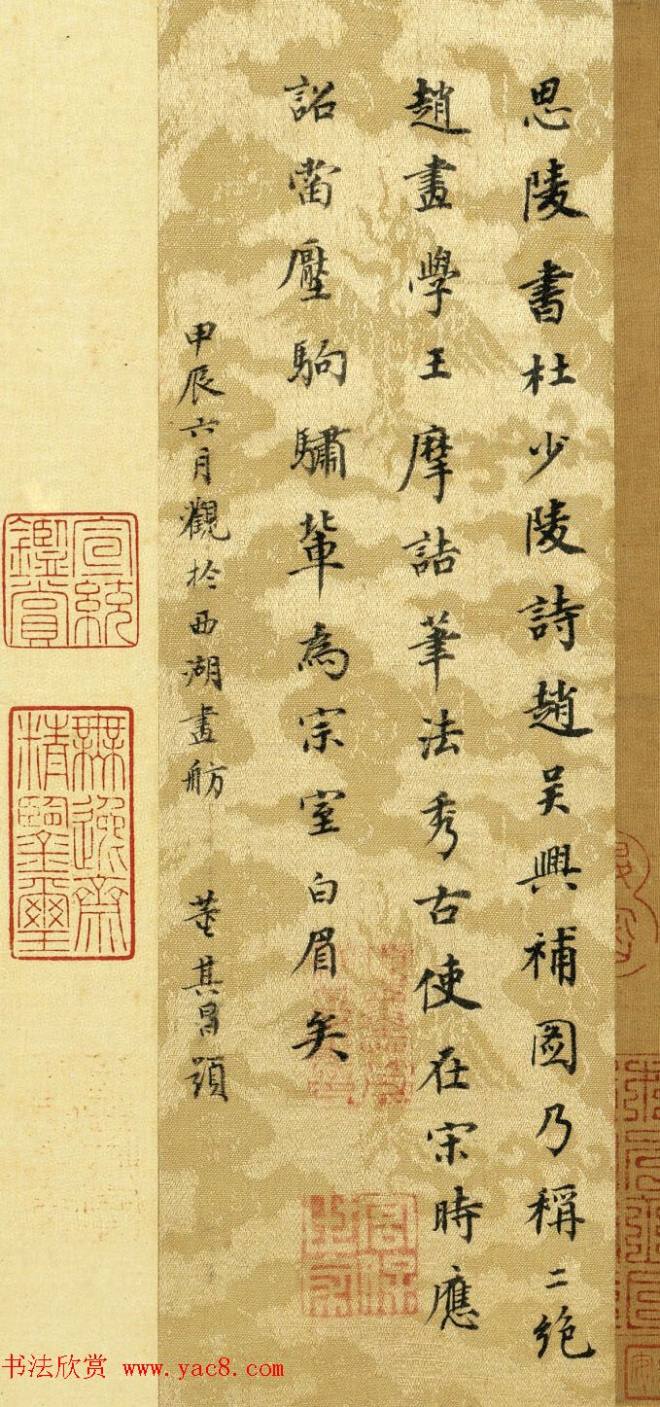 思陵書杜少陵詩趙吳興補圖乃稱二絶
趙畫學王摩詰筆法秀古使在宋時應
詔當壓駒驌輩為宗室白眉矣
甲辰六月觀於西湖畫舫 董其昌題
宣統鑑賞
無逸齋精鑒璽
书法欣赏 www.yac8.com